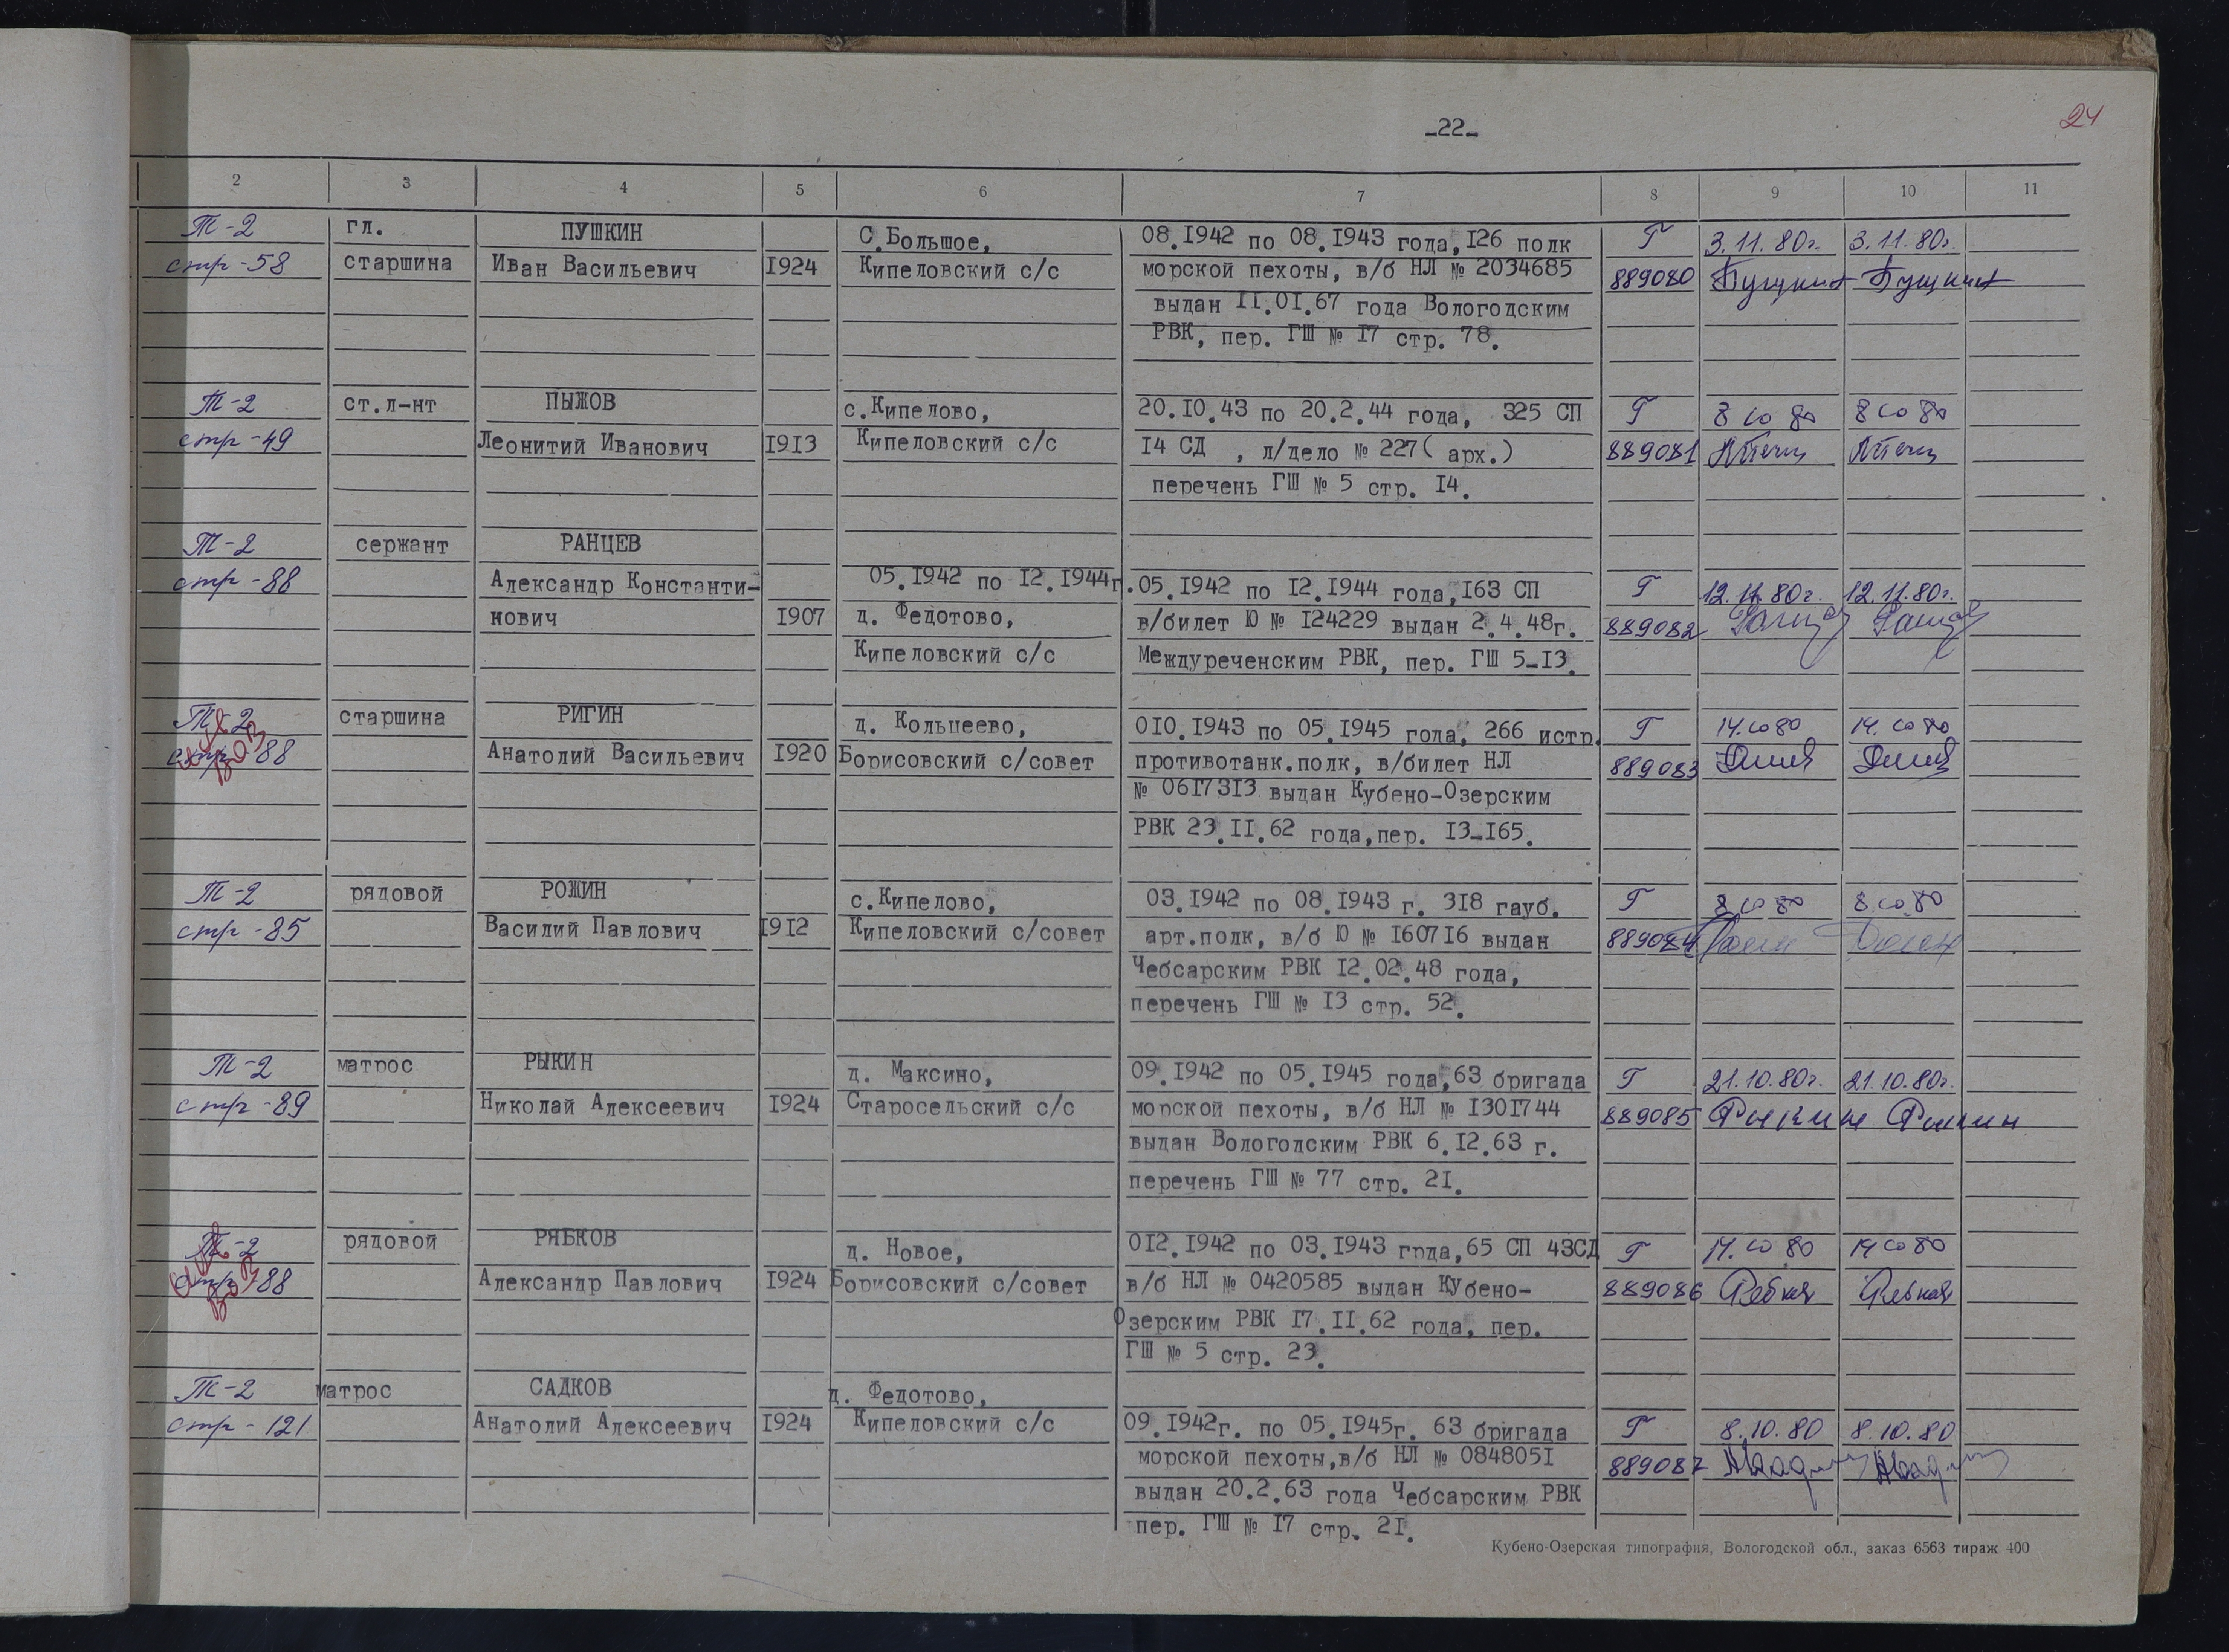 -22-
24
2 3 4 5 6 7 8 9 10 11
Т-2 гл. ПУШКИН С.Большое, 08.I942 по 08.I943 года, I26 полк Г 3.11.80г. 3.11.80г.
стр-58 старшина Иван Васильевич I924 Кипеловский с/с морской пехоты, в/б НЛ № 2034685 889080 Пушкин Пушкин
выдан II.0I.67 года Вологодским
РВК, пер. ГШ № I7 стр. 78.
Т-2 ст.л-нт ПЫЖОВ с.Кипелово, 20.I0.43 по 20.2.44 года, 325 СП Г 8 10 80 8 10 80
стр-49 Леонитий Иванович I9I3 Кипеловский с/с I4 СД , л/дело № 227( арх.) 889081
перечень ГШ № 5 стр. I4.
Т-2 сержант РАНЦЕВ
стр-88 Александр Константи- 05.I942 по I2.I944г. 05.I942 по I2.I944 года, I63 СП Г 12.11.80г. 12.11.80г.
нович I907 д. Федотово, в/билет Ю № I24229 выдан 2.4.48г. 889082
Кипеловский с/с Междуреченским РВК, пер. ГШ 5-I3.
Т-2 старшина РИГИН д. Кольцеево, 0I0.I943 по 05.I945 года, 266 истр. Г 14.10 80 14.10 80
стр-88 Анатолий Васильевич I920 Борисовский с/совет противотанк.полк, в/билет НЛ 889083
№ 06I73I3 выдан Кубено-Озерским
РВК 23.II.62 года,пер. I3-I65.
Т-2 рядовой РОЖИН с.Кипелово, 03.I942 по 08.I943 г. 3I8 гауб. Г 8 10 80 8.10.80
стр-85 Василий Павлович I9I2 Кипеловский с/совет арт.полк, в/б Ю № I607I6 выдан 889084
Чебсарским РВК I2.02.48 года,
перечень ГШ № I3 стр. 52.
Т-2 матрос РЫКИН д. Максино, 09.I942 по 05.I945 года, 63 бригада Г 21.10.80г. 21.10.80г.
стр-89 Николай Алексеевич I924 Старосельский с/с морской пехоты, в/б НЛ № I30I744 889085 Рыкин Рыкин
выдан Вологодским РВК 6.I2.63 г.
перечень ГШ № 77 стр. 2I.
Т-2 рядовой РЯБКОВ д. Новое, 0I2.I942 по 03.I943 года, 65 СП 43СД Г 14.10 80 14 10 80
стр-88 Александр Павлович I924 Борисовский с/совет в/б НЛ № 0420585 выдан Кубено- 889086
Озерским РВК I7.II.62 года, пер.
ГШ № 5 стр. 23.
Т-2 матрос САДКОВ д. Федотово,
стр-121 Анатолий Алексеевич I924 Кипеловский с/с 09.I942г. по 05.I945г. 63 бригада Г 8.10.80 8.10.80
морской пехоты,в/б НЛ № 084805I 889087
выдан 20.2.63 года Чебсарским РВК
пер. ГШ № I7 стр. 2I.
Кубено-Озерская типография, Вологодской обл., заказ 6563 тираж 400